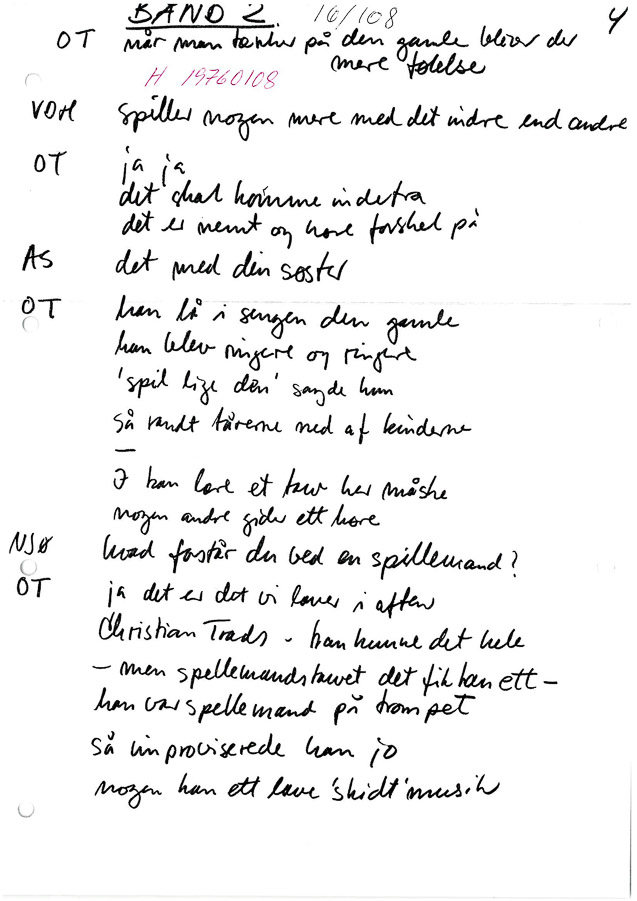 BAND 2. 16/108 4
OT når man tænker på den gamle bliver der
mere følelse
H 19760108
VOH spiller nogen mere med det indre end andre
OT ja ja
det skal komme indefra
det er nemt og høre forskel på
AS det med din søster
OT han lå i sengen den gamle
han blev ringere og ringere
'spil lige den' sagde han
så randt tårerne ned af kinderne
—
I kan lære et taw her måske
nogen andre gider ett høre
NSØ hvad forstår du ved en spillemand?
OT ja det er det vi laver i aften
Christian Trads - han kunne det hele
- men spellemandstawet det fik han ett -
han var spellemand på trompet
så improviserede han jo
nogen kan ett lave 'skidt' musik